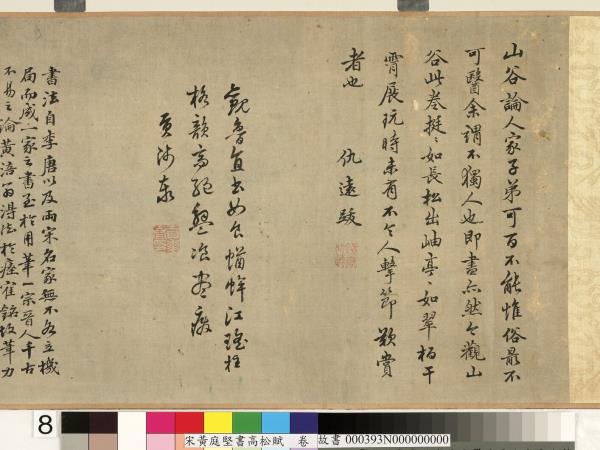 山谷論人家子弟可百不能惟俗最不
可醫余謂不獨人也即書亦然今觀山
谷此卷挺〻如長松出岫亭〻如翠栢干
霄展玩時未有不令人擊節歎賞
者也 仇遠跋
觀魯直書如食蝤蛑江瑤柱
格韻高絕盤飡盡廢
貢師泰
書法自李唐以及兩宋名家無不各立機
局而成一家之書至於用筆一宗晉人千古
不易之論黃涪翁得法於瘞鶴銘故筆力
8
宋黃庭堅書高松賦 卷 故書 000393N000000000